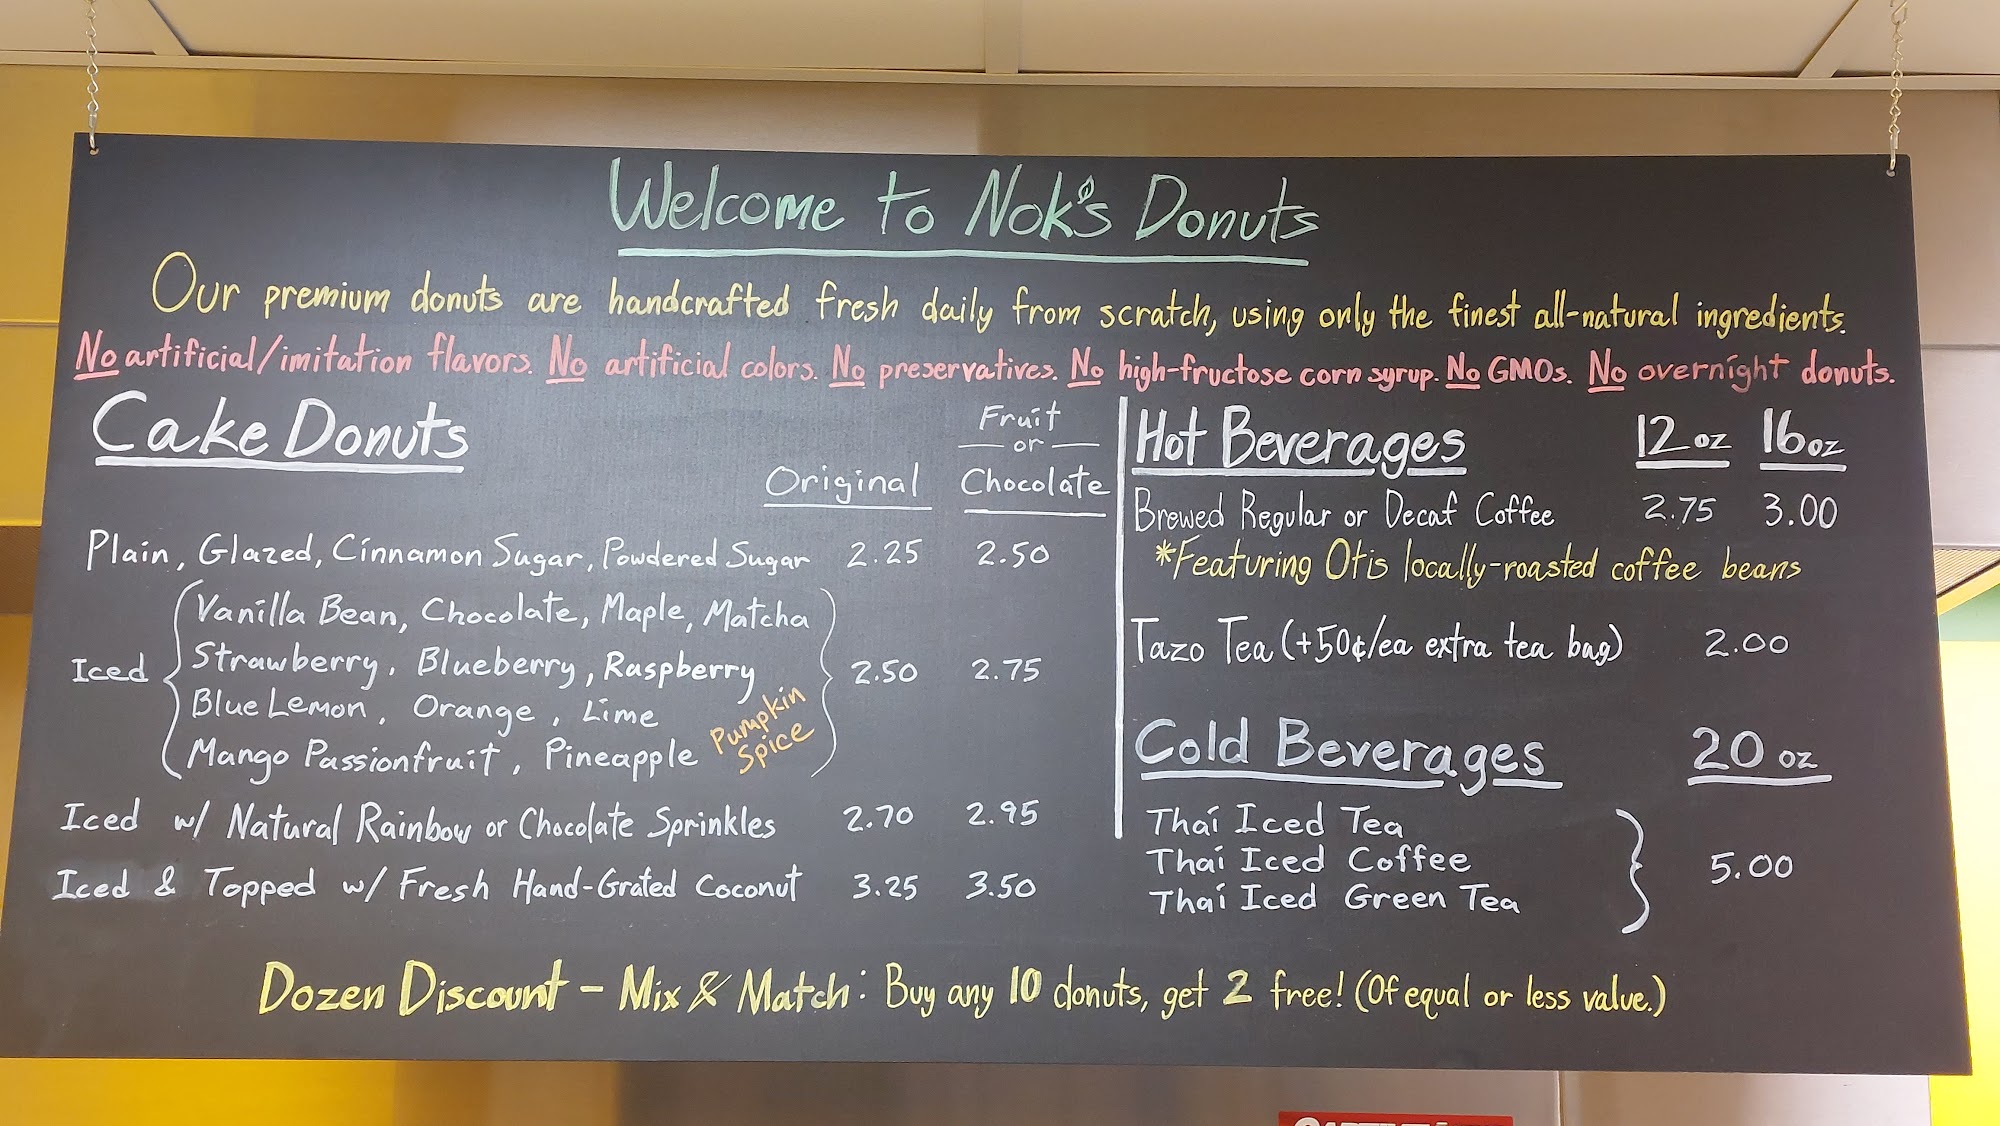 Welcome to Nok's Donuts
Our premium donuts are handcrafted fresh daily from scratch, using only the finest all-natural ingredients.
No artificial/imitation flavors. No artificial colors. No preservatives. No high-fructose corn syrup. No GMOs. No overnight donuts.
Cake Donuts
Original
Fruit
or
Chocolate
Plain, Glazed, Cinnamon Sugar, Powdered Sugar 2.25 2.50
Vanilla Bean, Chocolate, Maple, Matcha
Iced Strawberry, Blueberry, Raspberry 2.50 2.75
Blue Lemon, Orange, Lime
Mango Passionfruit, Pineapple
Pumpkin
Spice
Iced w/ Natural Rainbow or Chocolate Sprinkles 2.70 2.95
Iced & Topped w/ Fresh Hand-Grated Coconut 3.25 3.50
Hot Beverages 12 oz 16 oz
Brewed Regular or Decaf Coffee 2.75 3.00
*Featuring Otis locally-roasted coffee beans
Tazo Tea (+50¢/ea extra tea bag) 2.00
Cold Beverages 20 oz
Thai Iced Tea
Thai Iced Coffee 5.00
Thai Iced Green Tea
Dozen Discount - Mix & Match: Buy any 10 donuts, get 2 free! (Of equal or less value.)